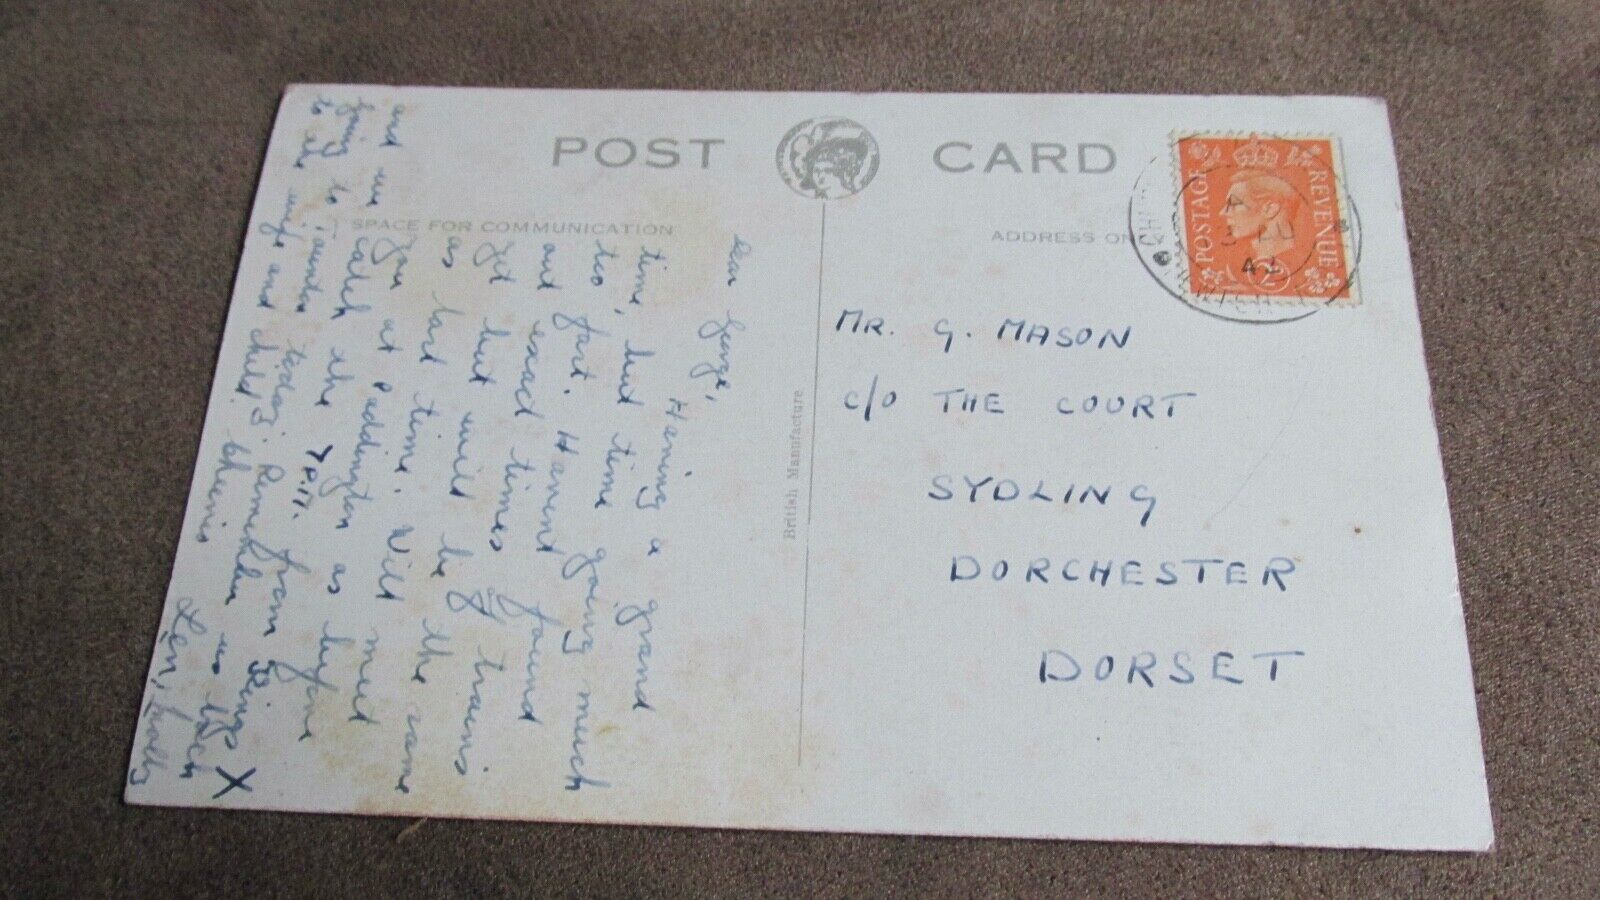 POST CARD
SPACE FOR COMMUNICATION
ADDRESS ONLY
POSTAGE
REVENUE
2D
3 JU
42
British Manufacture
MR. G. MASON
C/O THE COURT
SYDLING
DORCHESTER
DORSET
Dear George,
Having a grand
time, but time going much
too fast. Havent found
out exact times of trains
yet but will be the same
as last time. Will meet
you at Paddington as before
and catch the 7 P.M. from Kings X
going to Taunton today. Remember us both
to the wife and child. Cheerio
Len,